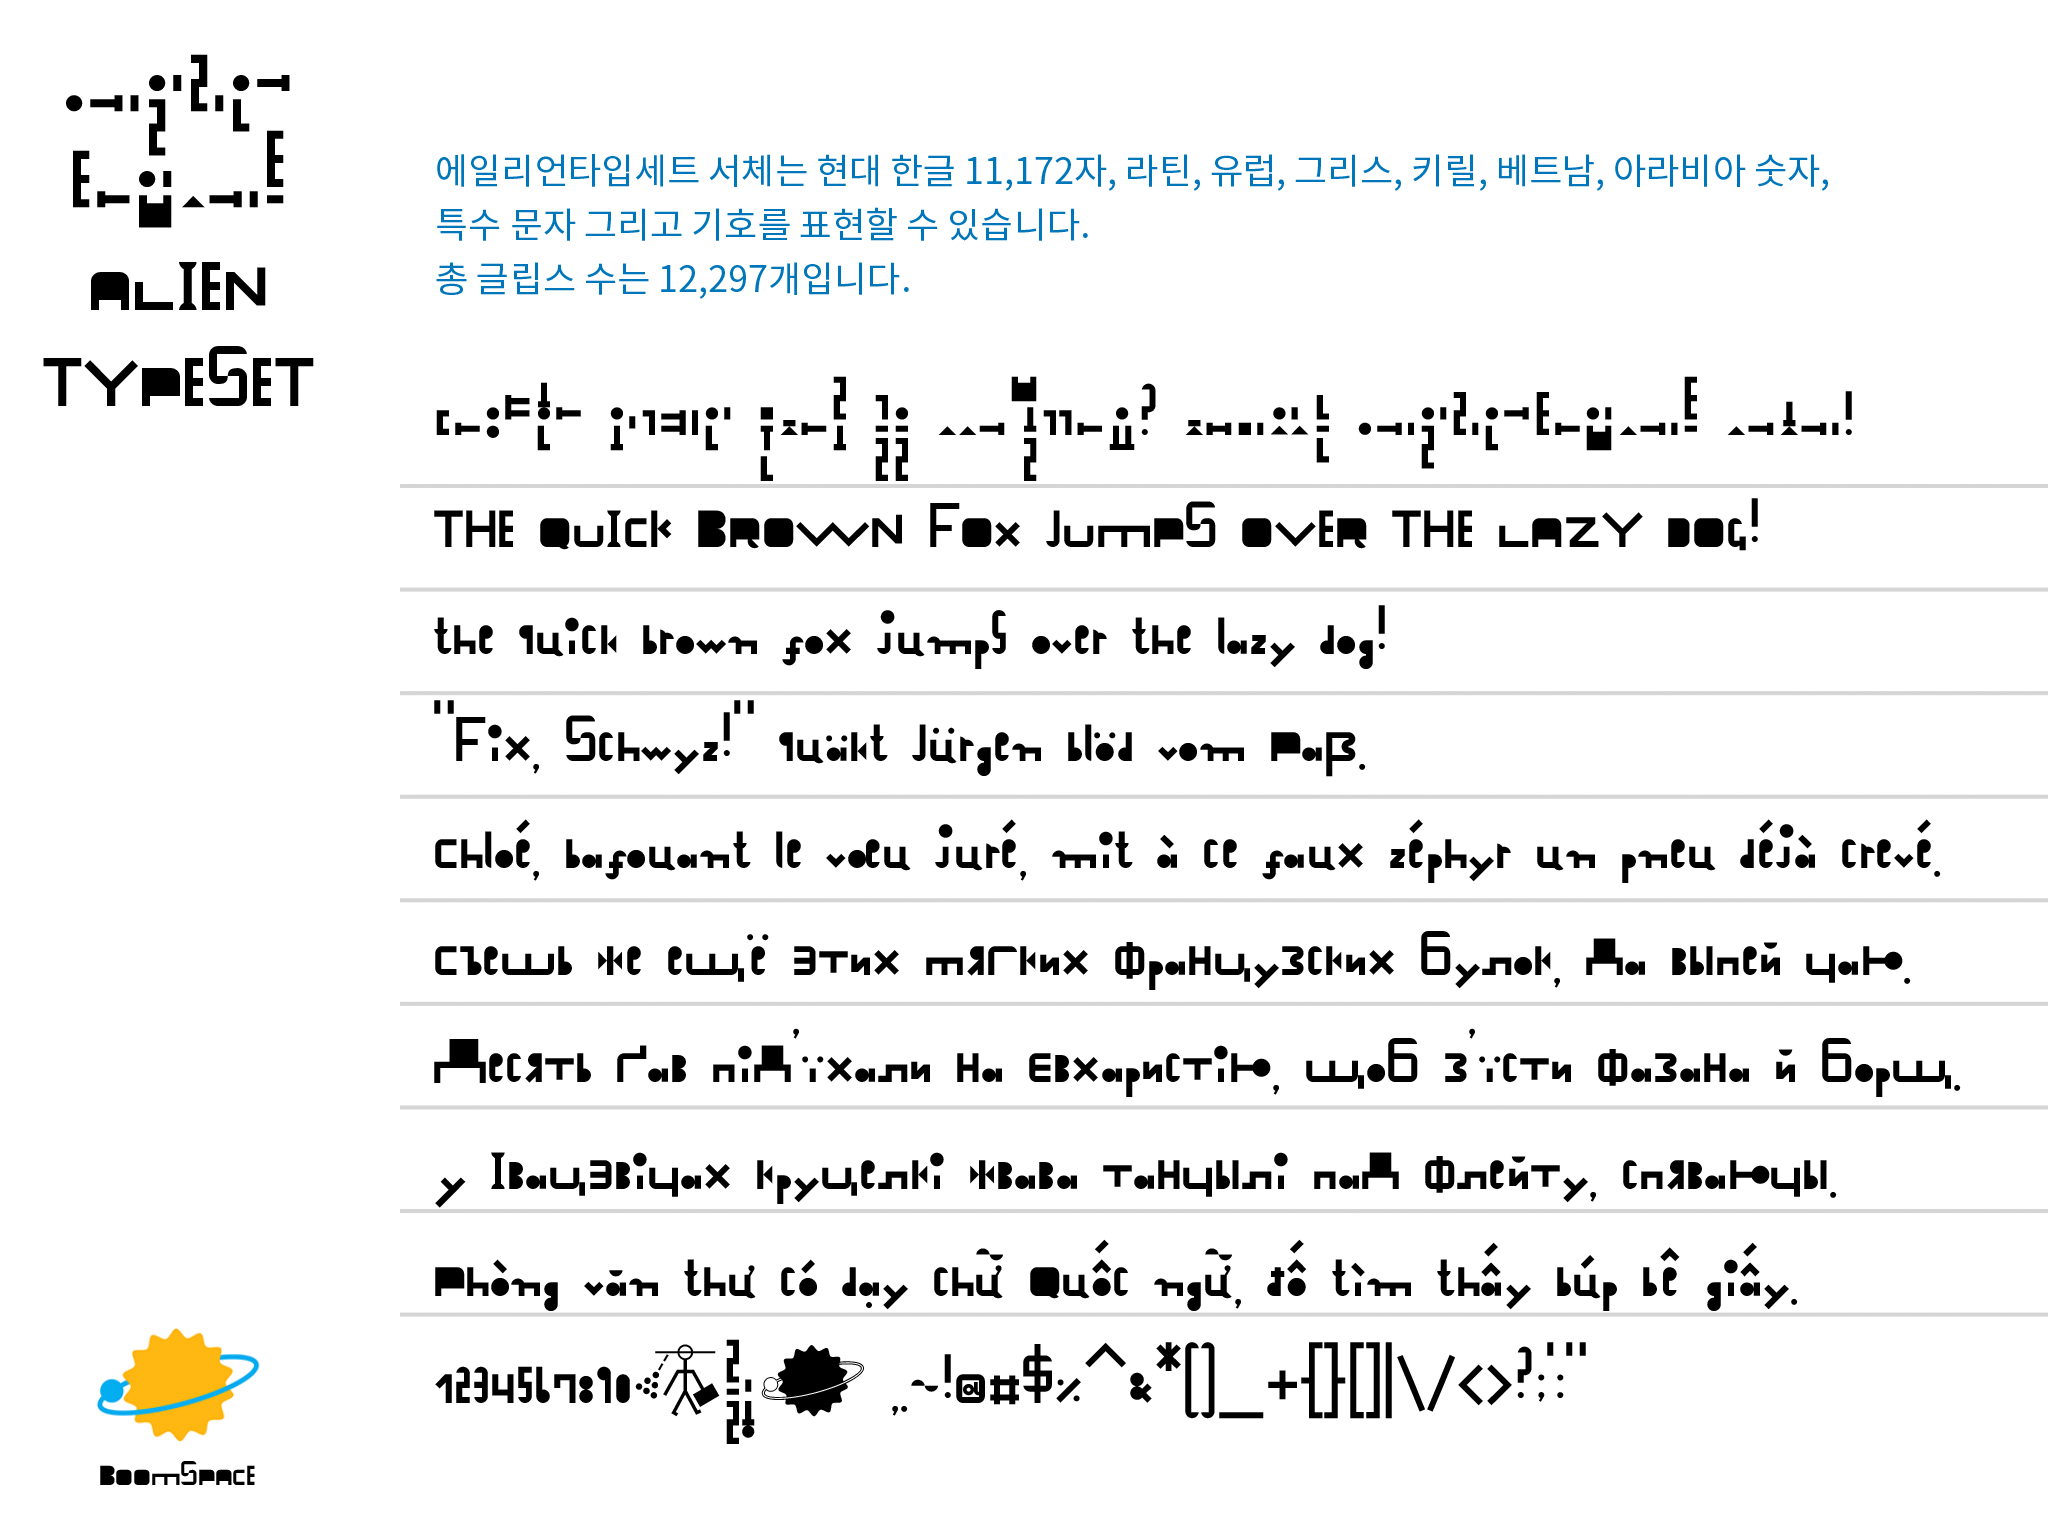 에일리언
타입세트
ALIEN
TYPESET
에일리언타입세트 서체는 현대 한글 11,172자, 라틴, 유럽, 그리스, 키릴, 베트남, 아라비아 숫자,
특수 문자 그리고 기호를 표현할 수 있습니다.
총 글립스 수는 12,297개입니다.
에일리언타입세트
THE QUICK BROWN FOX JUMPS OVER THE LAZY DOG!
the quick brown fox jumps over the lazy dog!
"Fix, Schwyz!" quäkt Jürgen blöd vom Paß.
Chloé, bafouant le vœu juré, mit à ce faux zéphyr un pneu déjà crevé.
Съешь же ещё этих мягких французских булок, да выпей чаю.
Десять ґав під’їхали на євхаристію, щоб з’їсти фазана й борщ.
У Івацэвічах круцелкі жвава танцылі пад флейту, спяваючы.
Phòng văn thư có dạy chữ Quốc ngữ, đố tìm thấy búp bê giấy.
1234567890 ,.~!@#$%^&*()_+{}[]|\/<>?;:'"
BOOMSPACE